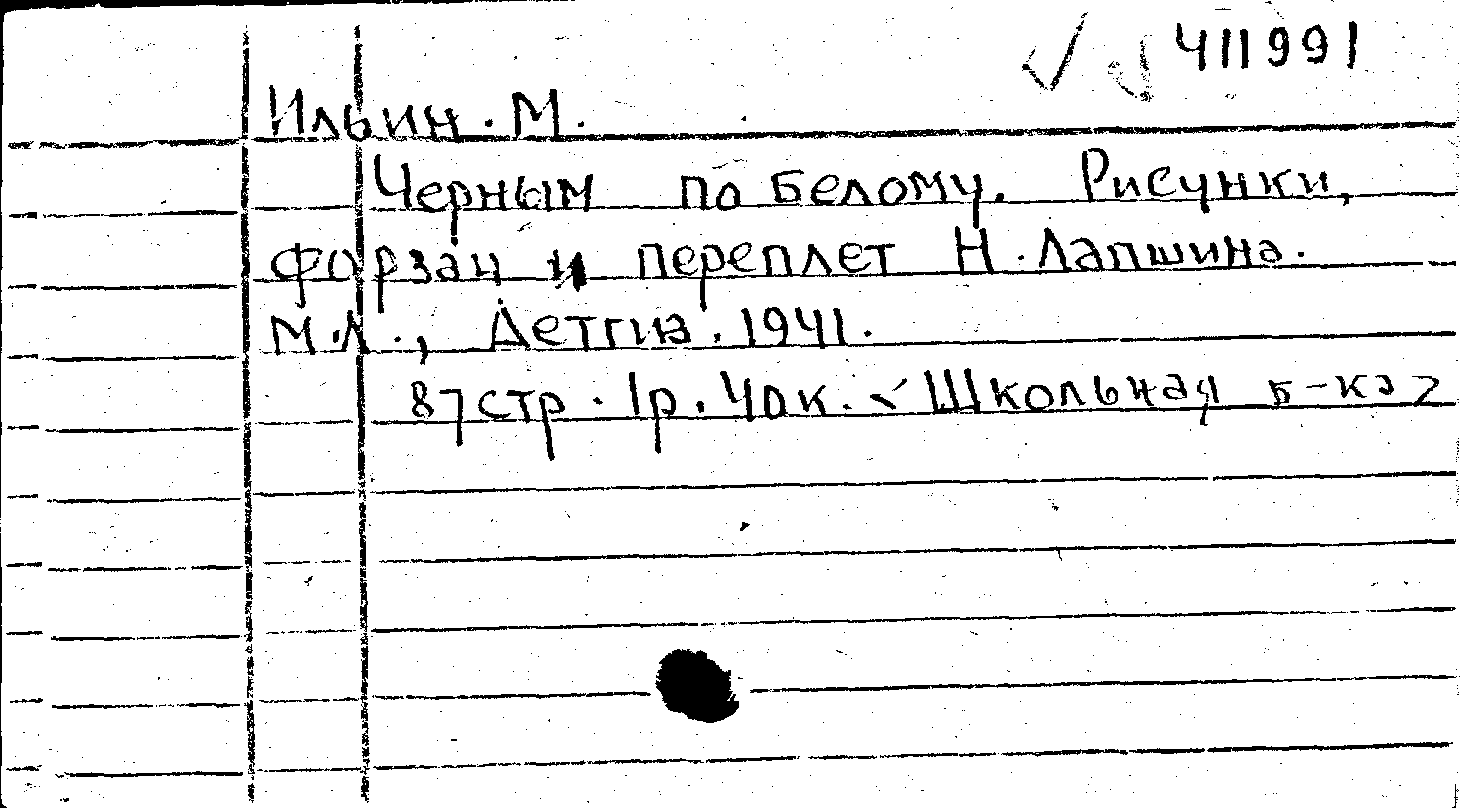 411991
Ильин. М.
Черным по белому. Рисунки,
форзац и переплет Н. Лапшина.
М.Л., Детгиз. 1941.
87 стр. 1р. 40 к. <Школьная б-ка>